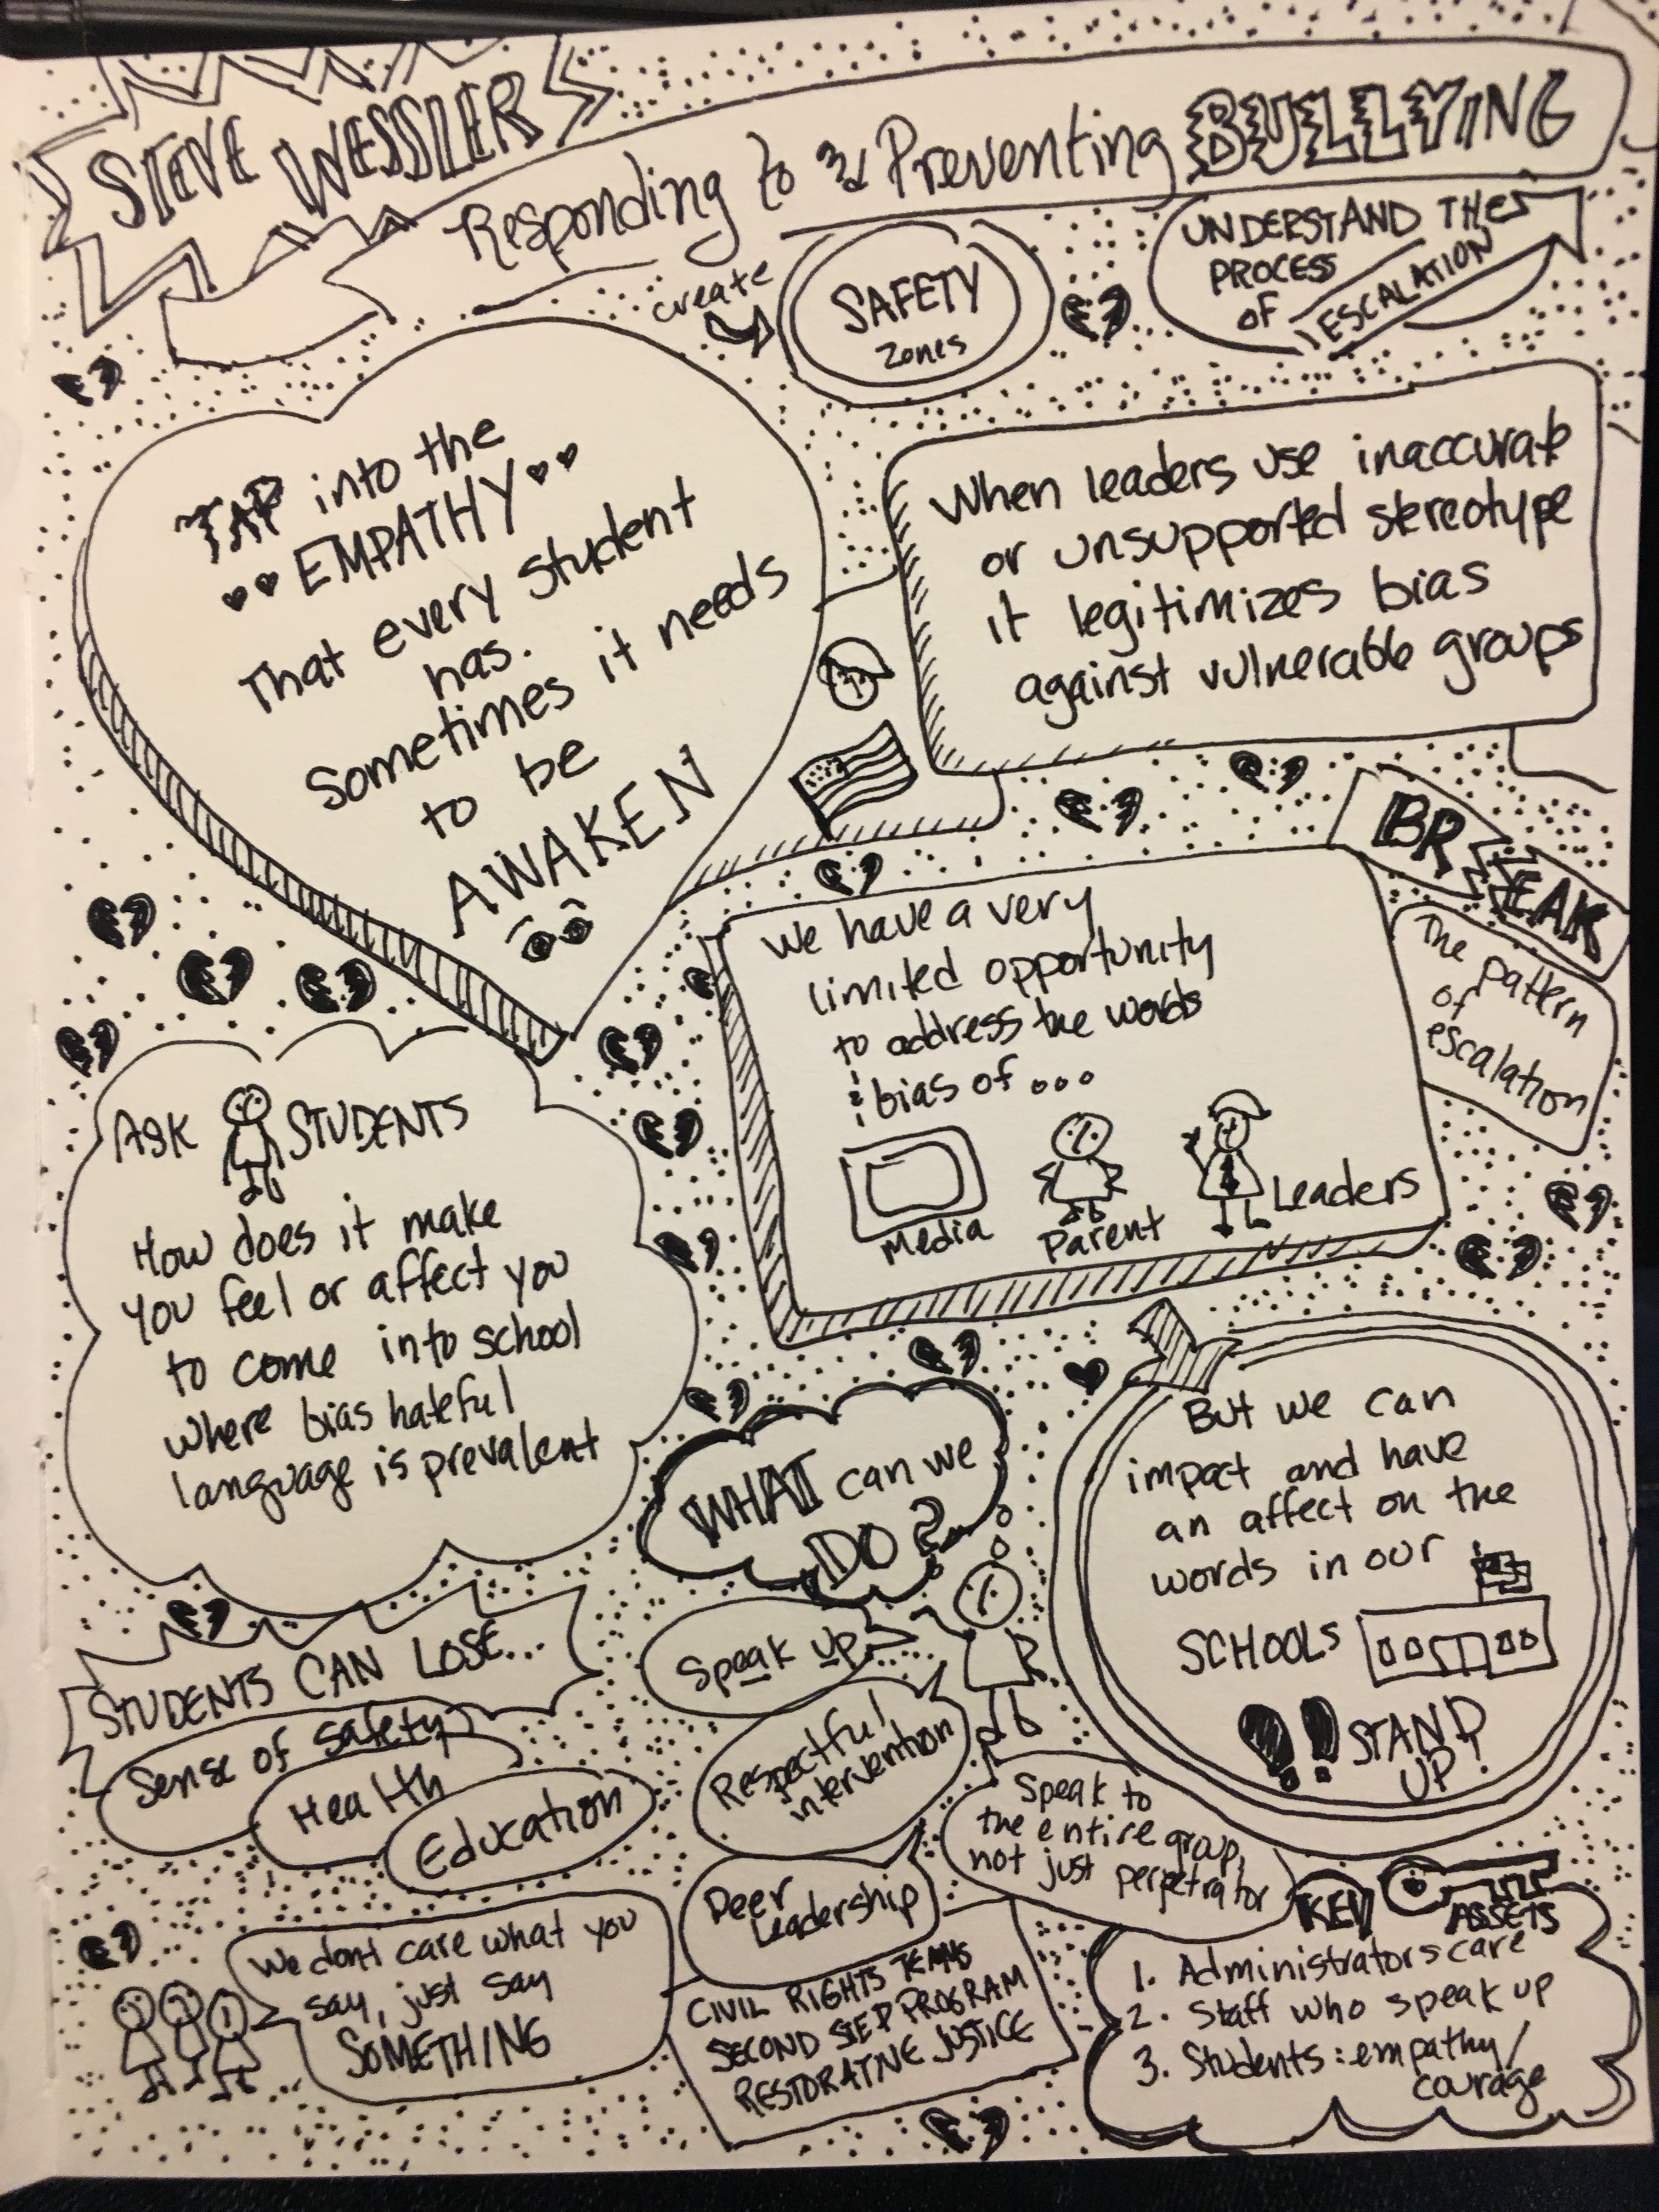 STEVE WESSLER
Responding to & Preventing BULLYING
create
SAFETY
zones
UNDERSTAND THE
PROCESS
OF ESCALATION
TAP into the
EMPATHY
That every student
has.
Sometimes it needs
to be
AWAKEN
When leaders use inaccurate
or unsupported stereotype
it legitimizes bias
against vulnerable groups
BREAK
The pattern
of
escalation
We have a very
limited opportunity
to address the words
& bias of...
Media
Parent
Leaders
ASK STUDENTS
How does it make
you feel or affect you
to come into school
where bias hateful
language is prevalent
WHAT can we
DO?
But we can
impact and have
an affect on the
words in our
SCHOOLS
!! STAND
UP!
STUDENTS CAN LOSE...
Sense of safety
Health
Education
Speak up
Respectful
intervention
Speak to
the entire group,
not just perpetrator
Peer
Leadership
CIVIL RIGHTS TEAMS
SECOND STEP PROGRAM
RESTORATIVE JUSTICE
We dont care what you
say, just say
SOMETHING
KEY ASSETS
1. Administrators care
2. Staff who speak up
3. Students: empathy/
courage